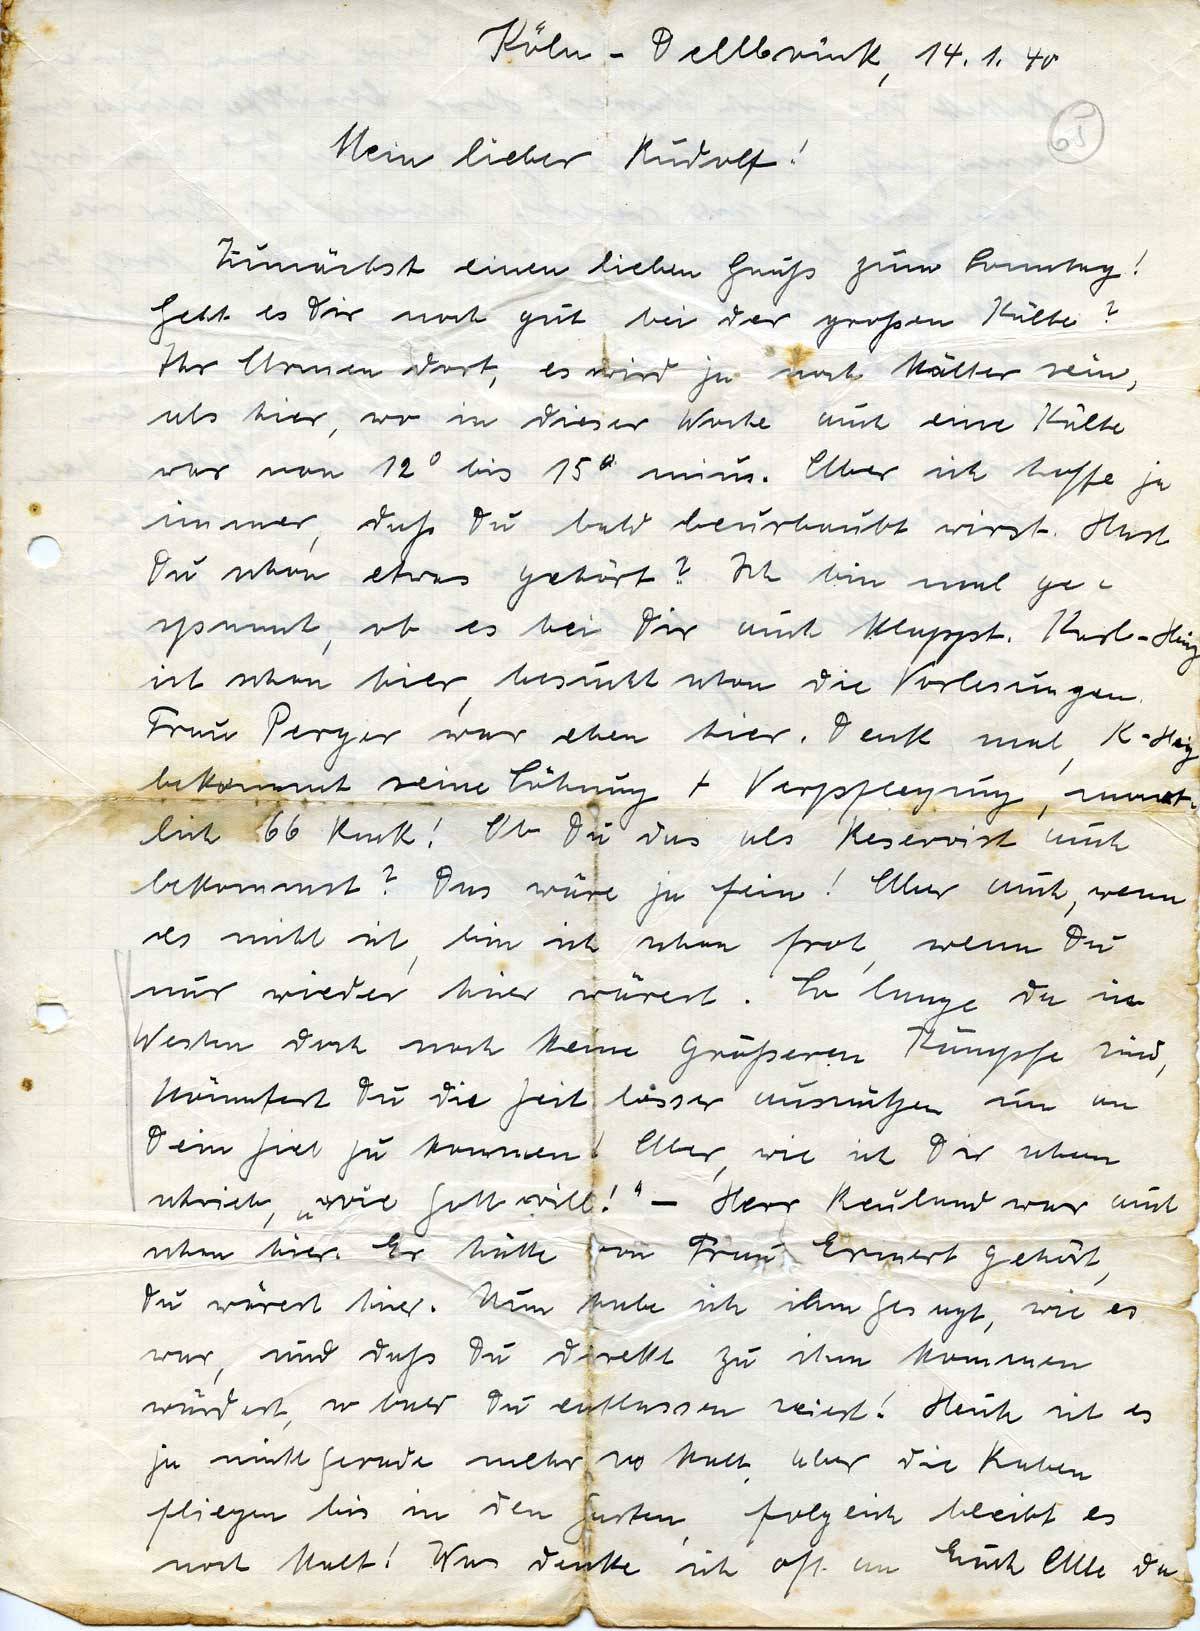 Köln - Dellbrück, 14. 1. 40
Mein lieber Rudolf!
Zunächst einen lieben Gruß zum Sonntag!
Geht es Dir noch gut bei der großen Kälte?
Ihr Armen dort, es wird ja noch kälter sein,
als hier, wo in dieser Woche auch eine Kälte
war von 12° bis 15° minus. Aber ich hoffe ja
immer, daß Du bald beurlaubt wirst. Hast
Du schon etwas gehört? Ich bin mal ge-
spannt, ob es bei Dir auch klappt. Karl-Heinz
ist schon hier, besucht schon die Vorlesungen.
Frau Perger war eben hier. Denk mal, K-Heinz
bekommt seine Löhnung + Verpflegung, monat-
lich 66 Mark! Ob Du das als Reservist auch
bekommst? Das wäre ja fein! Aber auch, wenn
es nicht ist, bin ich schon froh, wenn Du
nur wieder hier wärest. So lange da im
Westen doch noch keine größeren Kämpfe sind,
könntest Du die Zeit besser ausnützen um an
Dein Ziel zu kommen! Aber, wie ich Dir schon
schrieb, „wie Gott will!“ - Herr Reuland war auch
schon hier. Er hätte von Frau Ermert gehört,
Du wärest hier. Nun habe ich ihm gesagt, wie es
war, und daß Du direkt zu ihm kommen
würdest, sobald Du entlassen seiest! Heute ist es
ja nicht gerade mehr so kalt, aber die Raben
fliegen bis in den Garten, folglich bleibt es
noch kalt! Was denke ich oft an Euch Alle da